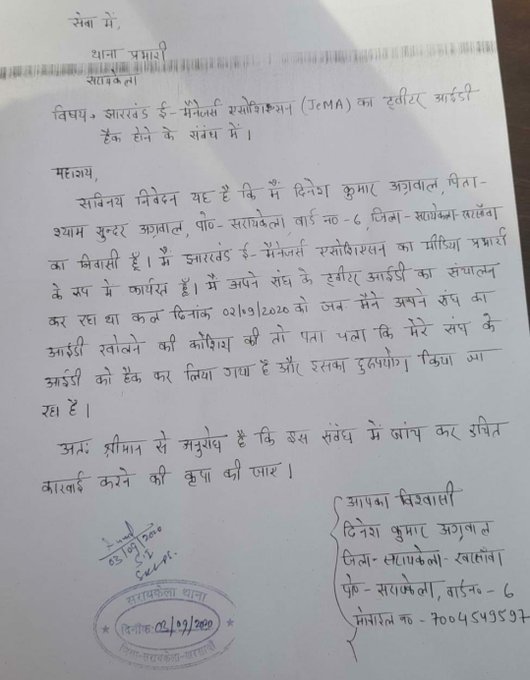 सेवा में,
थाना प्रभारी
सरायकेला
विषय- झारखंड ई-मैनेजर्स एसोशिएसन (JeMA) का ट्वीटर आईडी
हैक होने के संबंध में।
महाशय,
सविनय निवेदन यह है कि मैं दिनेश कुमार अग्रवाल, पिता-
श्याम सुन्दर अग्रवाल, पो०- सरायकेला, वार्ड न०-6, जिला- सरायकेला-खरसाँवा
का निवासी हूँ। मैं झारखंड ई-मैनेजर्स एसोशिएसन का मीडिया प्रभारी
के रूप मे कार्यरत हूँ। मैं अपने संघ के ट्वीटर आईडी का संचालन
कर रहा था कल दिनांक 02/09/2020 को जब मैंने अपने संघ का
आईडी खोलने की कोशिश की तो पता चला कि मेरे संघ के
आईडी को हैक कर लिया गया है और इसका दुरूपयोग किया जा
रहा है।
अतः श्रीमान से अनुरोध है कि इस संबंध में जांच कर उचित
कारवाई करने की कृपा की जाए।
आपका विश्वासी
दिनेश कुमार अग्रवाल
जिला- सरायकेला- खरसाँवा
पो०- सरायकेला, वार्ड न०- 6
मोबाइल न०- 7004549597
03/09/2020
S.I
सरायकेला थाना
दिनांक 03/09/2020
जिला-सरायकेला-खरसावाँ